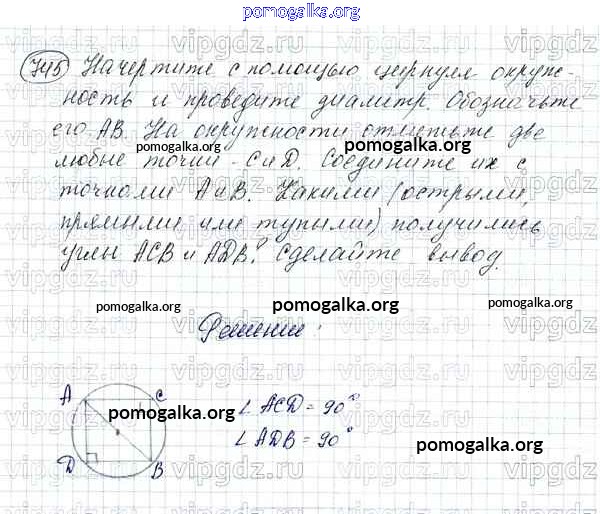 pomogalka.org
745 Начертите с помощью циркуля окруж-
ность и проведите диаметр. Обозначьте
его AB. На окружности отметьте две
любые точки - C и D. Соедините их с
точками A и B. Какими (острыми,
прямыми или тупыми) получились
углы ACB и ADB? Сделайте вывод.
pomogalka.org pomogalka.org pomogalka.org
Решение:
A C
pomogalka.org
∠ ACD = 90°
∠ ADB = 90°
pomogalka.org
D B
vipgdz.ru